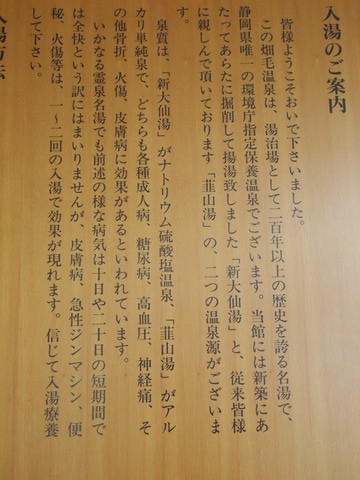 入湯のご案内
皆様ようこそおいで下さいました。
この畑毛温泉は、湯治場として二百年以上の歴史を誇る名湯で、
静岡県唯一の環境庁指定保養温泉でございます。当館には新築にあ
たってあらたに掘削して揚湯致しました「新大仙湯」と、従来皆様
に親しんで頂いております「韮山湯」の、二つの温泉源がございま
す。
泉質は、「新大仙湯」がナトリウム硫酸塩温泉、「韮山湯」がアル
カリ単純泉で、どちらも各種成人病、糖尿病、高血圧、神経痛、そ
の他骨折、火傷、皮膚病に効果があるといわれています。
いかなる霊泉名湯でも前述の様な病気は十日や二十日の短期間で
は全快という訳にはまいりませんが、皮膚病、急性ジンマシン、便
秘、火傷等は、一〜二回の入湯で効果が現れます。信じて入湯療養
して下さい。
入湯方法